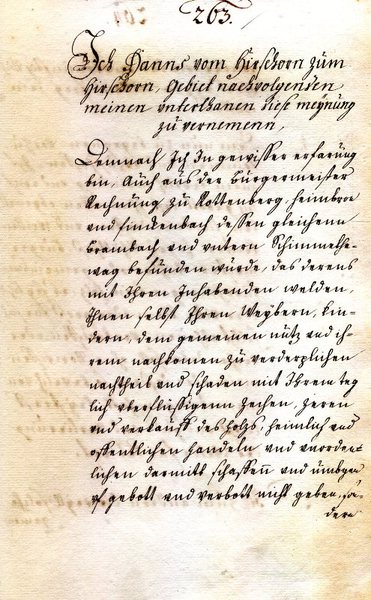 263.
Ich Hanns vom Hirschorn zum
Hirschorn, gebiet nachvolgenden
meinen unterthanen diese meynung
zu vernemenn,
Demnach Ich In gewisser erfarung
bin, Auch aus der Burgermeister
Rechnung zu Rottenberg, heimbron
und finckenbach dessen gleichenn
Brambach und untern Schimmelde-
wag befunden würde, das derens
mit Ihren Inhabenden welden,
Ihnen selbst Ihren Weybern, kin-
dern, dem gemeinen nütz und ih-
rem nachkomen zu verderplichen
nachtheil und schaden mit Ihrem teg
lich uberflüssigenn zechen, zeren
und verkauff des holtz, heimlich und
offentlichen handeln und unordent
lichen darmit schaffenn und umbgen
uf gebott und verbott nicht geben, son
dern